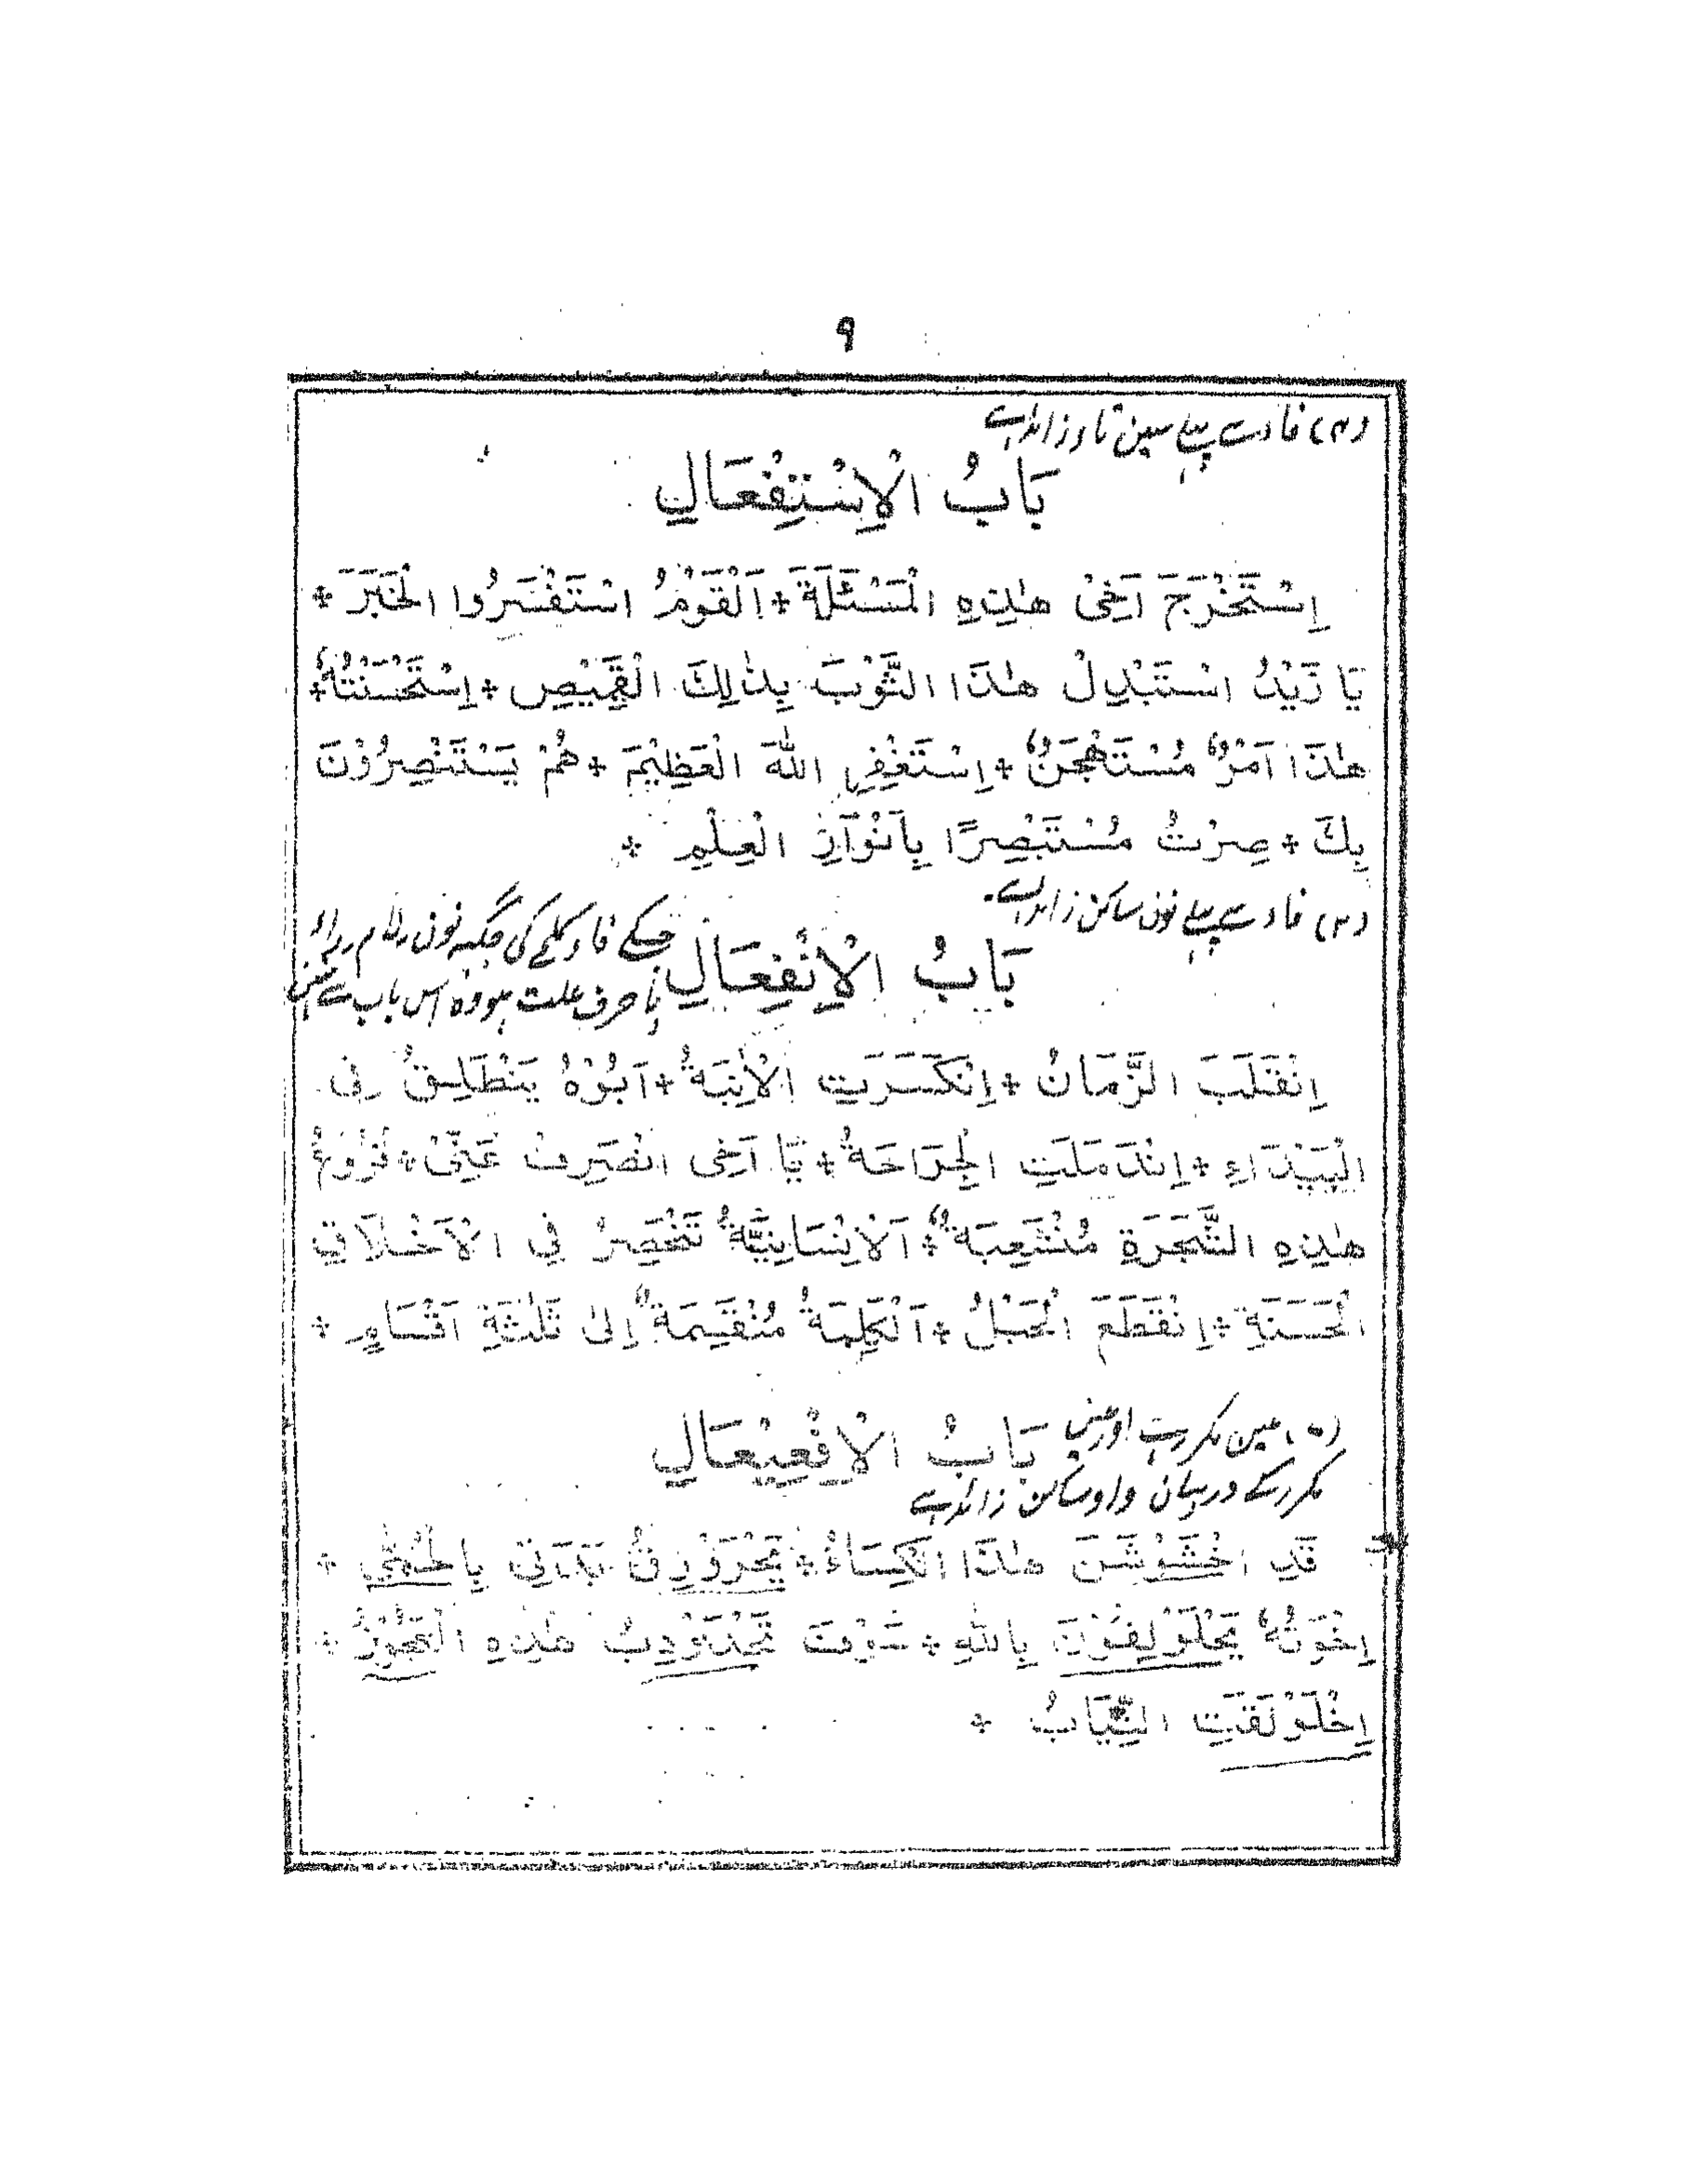 ٩
فاء سے پہلے سین تاء زائد ہے
بَابُ الْاِسْتِفْعَالِ
اِسْتَخْرَجَ اَخِىْ هٰذِهِ الْمَسْئَلَةَ + اَلْقَوْمُ اسْتَفْسَرُوا الْخَبَرَ +
يَا زَيْدُ اسْتَبْدِلْ هٰذَا الثَّوْبَ بِذٰلِكَ الْقَمِيْصِ + اِسْتَحْسَنْتُهٗ +
هٰذَا اَمْرٌ مُسْتَهْجَنٌ + اِسْتَغْفِرِ اللّٰهَ الْعَظِيْمَ + هُمْ يَسْتَنْصِرُوْنَ
بِكَ + صِرْتُ مُسْتَبْصِرًا بِاَنْوَارِ الْعِلْمِ +
فاء سے پہلے نون ساکن زائد ہے۔
بَابُ الْاِنْفِعَالِ
جسکے فاء کلمے کی جگہ نون لام راء
یا حرف علت ہو وہ اس باب سے نہیں
اِنْقَلَبَ الزَّمَانُ + اِنْكَسَرَتِ الْاٰنِيَةُ + اَبُوْهُ يَنْطَلِقُ فِى
الْبَيْدَاءِ + اِنْدَمَلَتِ الْجِرَاحَةُ + يَا اَخِى انْصَرِفْ عَنِّىْ + فُرُوْعُ
هٰذِهِ الشَّجَرَةِ مُنْشَعِبَةٌ + اَلْاِنْسَانِيَّةُ تَنْحَصِرُ فِي الْاَخْلَاقِ
الْحَسَنَةِ + اِنْقَطَعَ الْحَبْلُ + اَلْكَلِمَةُ مُنْقَسِمَةٌ اِلٰى ثَلٰثَةِ اَقْسَامٍ +
بَابُ الْاِفْعِيْعَالِ
عین مکرر ہے اور عین
مکرر کے درمیان واو ساکن زائد ہے
قَدِ اخْشَوْشَنَ هٰذَا الْكِسَاءُ + يَحْرَوْرِقُ بَدَنِىْ بِالْحُمّٰى +
اِخْوَتُهٗ يَحْلَوْلِفُوْنَ بِاللّٰهِ + سَوْفَ تَحْدَوْدِبُ هٰذِهِ الْعَجُوْزُ +
اِخْلَوْلَقَتِ الثِّيَابُ +